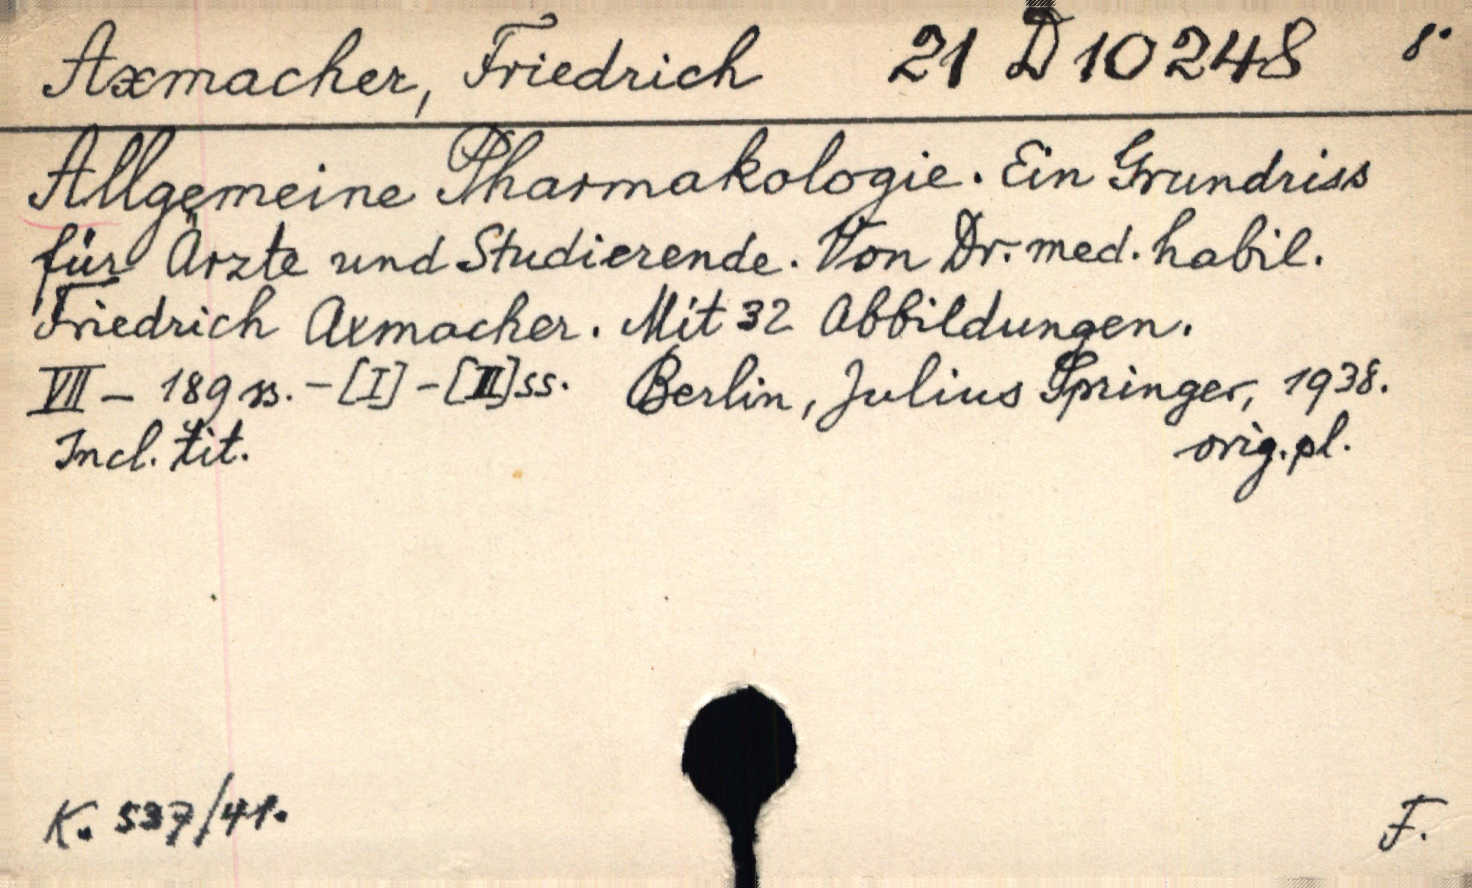 Axmacher, Friedrich 21 D 10248 8°
Allgemeine Pharmakologie. Ein Grundriss
für Ärzte und Studierende. Von Dr. med. habil.
Friedrich Axmacher. Mit 32 Abbildungen.
VII – 189 ss. – [I] – [II] ss. Berlin, Julius Springer, 1938.
Incl. tit. orig. pl.
K. 537/41. F.